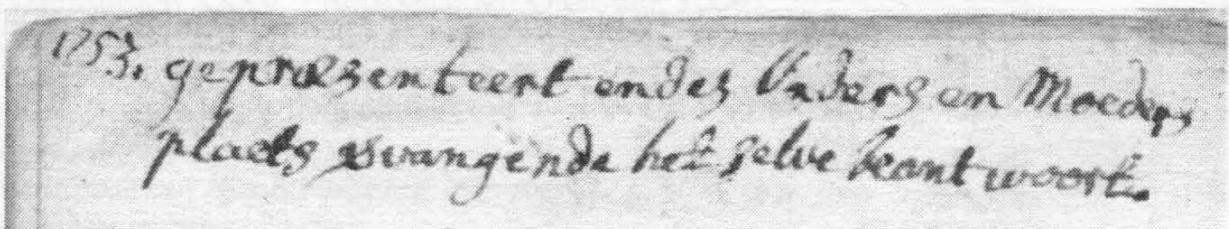 1753. gepræsenteert en des Vaders en Moeders
plaets vervangende het selve beantwoort.